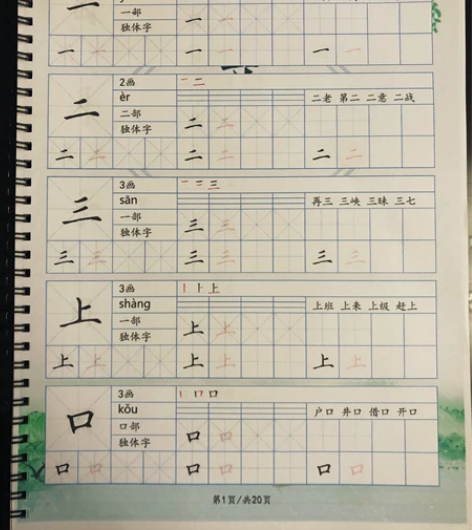 一部
独体字
一 一 一 一 一 一
2画 一 二
èr
二 二老 第二 二意 二战
二部 二 二
独体字
二 二 二 二 二 二
3画 一 二 三
sān
三 再三 三峡 三昧 三七
一部 三 三
独体字
三 三 三 三 三 三
3画 丨 卜 上
shàng
上 上班 上来 上级 赶上
一部 上 上
独体字
上 上 上 上 上 上
3画 丨 冂 口
kǒu
口 户口 井口 借口 开口
口部 口 口
独体字
口 口 口 口 口 口
第1页/共20页